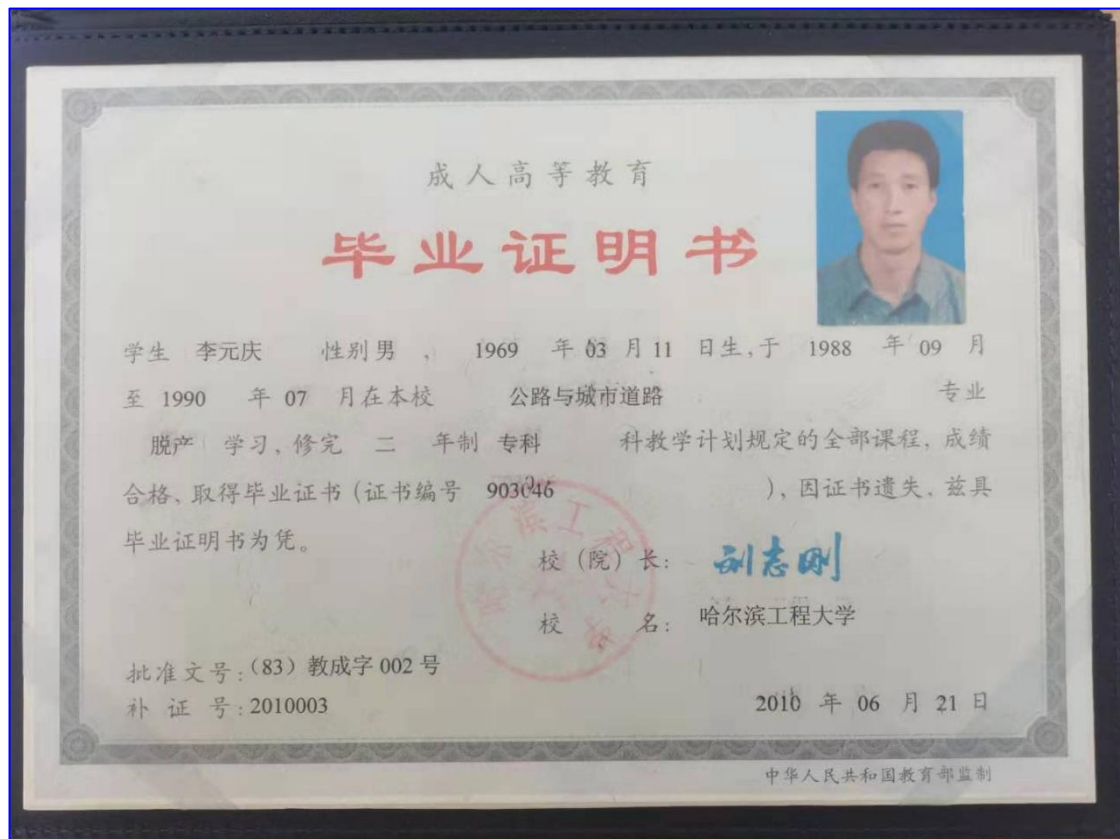 成人高等教育
毕业证明书
学生 李元庆 性别 男 , 1969 年 03 月 11 日生,于 1988 年 09 月
至 1990 年 07 月在本校 公路与城市道路 专业
脱产 学习、修完 二 年制 专科 科教学计划规定的全部课程、成绩
合格、取得毕业证书(证书编号 903046 )、因证书遗失、兹具
毕业证明书为凭。
校(院)长: 刘志刚
校 名: 哈尔滨工程大学
批准文号:(83)教成字 002 号
补 证 号:2010003
2010 年 06 月 21 日
中华人民共和国教育部监制